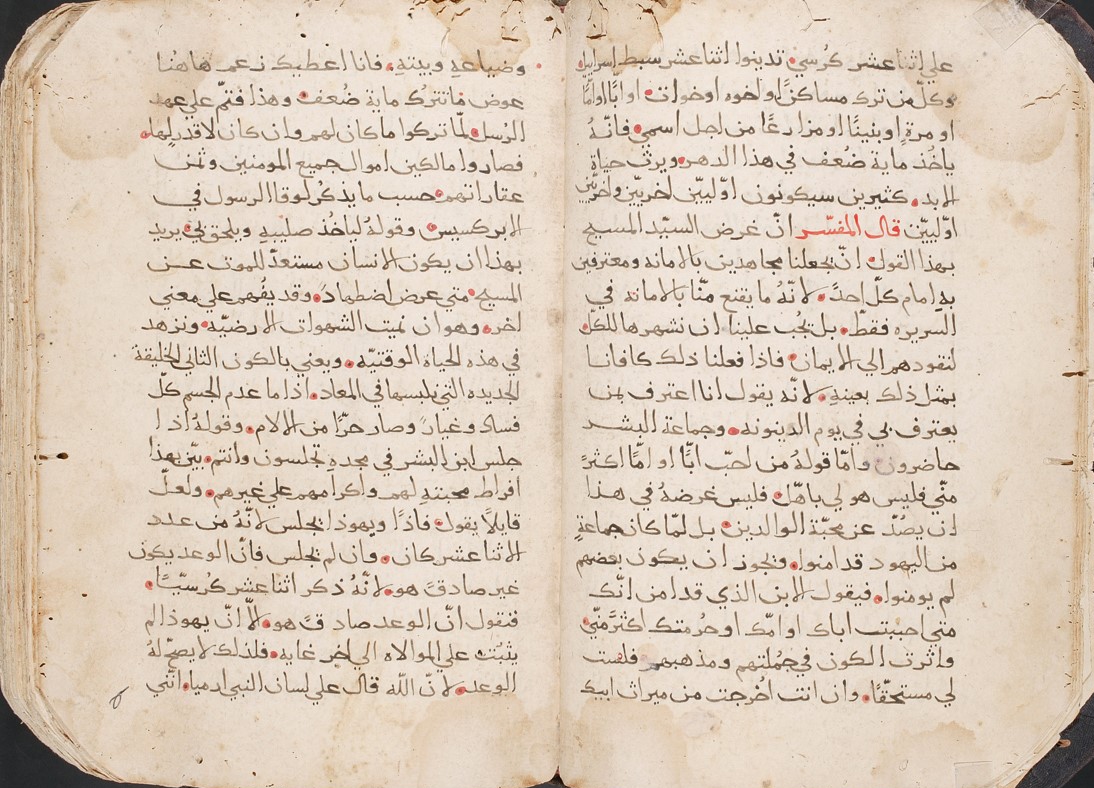 على اثنا عشر كرسي تدينوا اثنا عشر سبط اسراييل
وكلّ من ترك مساكنًا او اخوه او خوات او ابًا او امًّا
او مرةٍ او بنينًا او مزارعًا من اجل اسمي فانّهُ
ياخُذ ماية ضُعف في هذا الدهر ويرث حياة
الابد كثيرين سيكونون اوّليّين اخريّين واخريّين
اوّليّين قال المفسّر انّ غرض السيّد المسيح
بهذا القول ان يجعلنا مجاهدين بالامانه ومعترفين
بهِ امام كلّ احدً لانّهُ ما يقنع منّا بالامانه في
السريره فقطّ بل يجُب علينا ان نشهرها للكلّ
لنقودهم الى الايمان فاذا فعلنا ذلك كافانا
بمثل ذلك بعينهِ لانّه يقول انا اعترف بمن
يعترف بي في يوم الدينونه وجماعة البشر
حاضرون وامّا قولهُ من احبّ ابًا او امًّا اكثرً
منّي فليس هو لي باهّل فليس غرضهُ في هذا
ان يصُدّ عن محبّة الوالدين بل لمّا كان جماعةٍ
من اليهود قد امنوا ويجوز ان يكون بعضهم
لم يومنوا فيقول الابن الذي قد امن انّك
متى احببت اباك او امّك او حُرمتك اكثرَ منّي
واثرت الكون في جُملتهم ومذهبهم فلست
لي مستحقًّا وان انت اخُرجت من ميراث ابيك
وضياعهِ وبيتهِ فانا اعطيك نعم هاهُنا
عوض ما تترك ماية ضُعف وهذا فتمّ على عهد
الرُسل لمّا تركوا ما كان لهم وان كان لا قدر لِها
فصاروا مالكين اموال جميع المومنين وثمن
عقاراتهم حسب ما يذكُر لوقا الرسول في
الابركسيس وقولهُ لياخُذ صليبهِ ويلحق بي يريد
بهذا ان يكون الانسان مستعدّ للموت عن
المسيح متى عرض اضطهادً وقد يفُهم على معنى
اخر وهو ان يميت الشهوات الارضيّه ونزهد
في هذه الحياة الوقتيّه ويعني بالكون الثاني الخليقة
الجديده التي نلبسها في المعاد اذا ما عدم الجسم كلّ
فسادً وغيارً وصار حرًّا من الالام وقولهُ اذا
جلس ابن البشر في مجدهِ تجلسون وانتم بيّن بهذا
افراط محبتهِ لهم واكرامهم على غيرهم ولعلّ
قايلًا يقول فاذًا ويهوذا يجلس لانّهُ من عدد
الاثنا عشر كان وان لم يجلس فانّ الوعد يكون
غير صادقً هو لانّهُ ذكر اثنا عشر كُرسيًّا
فنقول انّ الوعد صادقً هو الّا انّ يهوذا لم
يثبُت على الموالاه الى اخر غايه فلذلك لا يصحّ لهُ
الوعد لانّ اللّه قال على لسان النبي ارميا انّني